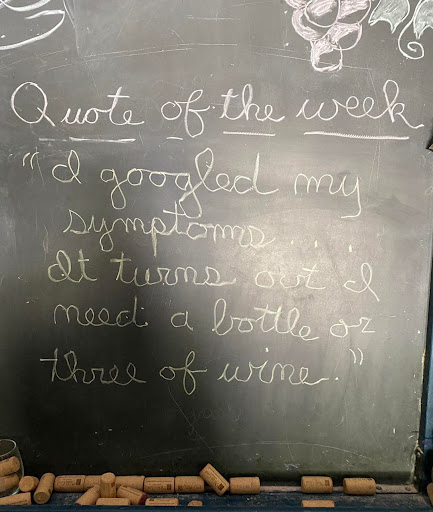 Quote of the week
"I googled my
symptoms . . .
It turns out I
need a bottle or
three of wine."